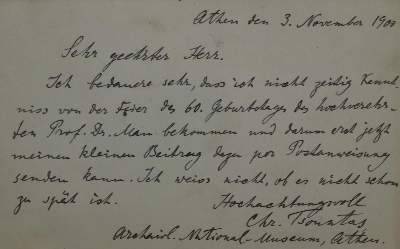 Athen den 3. November 1900
Sehr geehrter Herr.
Ich bedauere sehr, dass ich nicht zeitig Kennt-
niss von der Feier des 60. Geburtstages des hochverehr-
ten Prof. Dr. Mau bekommen und darum erst jetzt
meinen kleinen Beitrag dazu per Postanweisung
senden kann. Ich weiss nicht, ob es nicht schon
zu spät ist. Hochachtungsvoll
Chr. Tsountas
Archaiol. National-Museum, Athen.